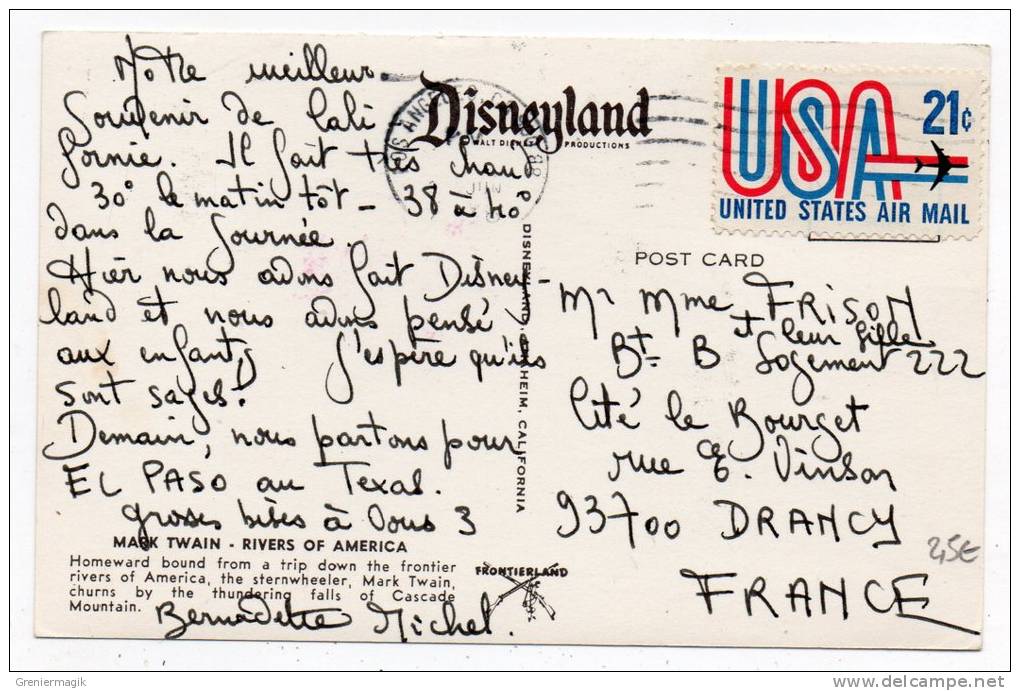 Notre meilleur
Souvenir de Cali
fornie. Il fait très chaud
30° le matin tôt - 38 à 40°
dans la journée.
Hier nous avons fait Disney-
land et nous avons pensé
aux enfants j'espère qu'ils
sont sages!
Demain, nous partons pour
EL PASO au Texas.
grosses bises à vous 3
Bernadette Michel.
MARK TWAIN - RIVERS OF AMERICA
Homeward bound from a trip down the frontier
rivers of America, the sternwheeler, Mark Twain,
churns by the thundering falls of Cascade
Mountain.
Disneyland
WALT DISNEY PRODUCTIONS
LOS ANGELES
DISNEYLAND, ANAHEIM, CALIFORNIA
FRONTIERLAND
USA 21¢
UNITED STATES AIR MAIL
POST CARD
Mr Mme FRISON
et leur fille
Bt B Logement 222
Cité le Bourget
rue Vinson
93700 DRANCY
FRANCE
Greniermagik
delcampe.net